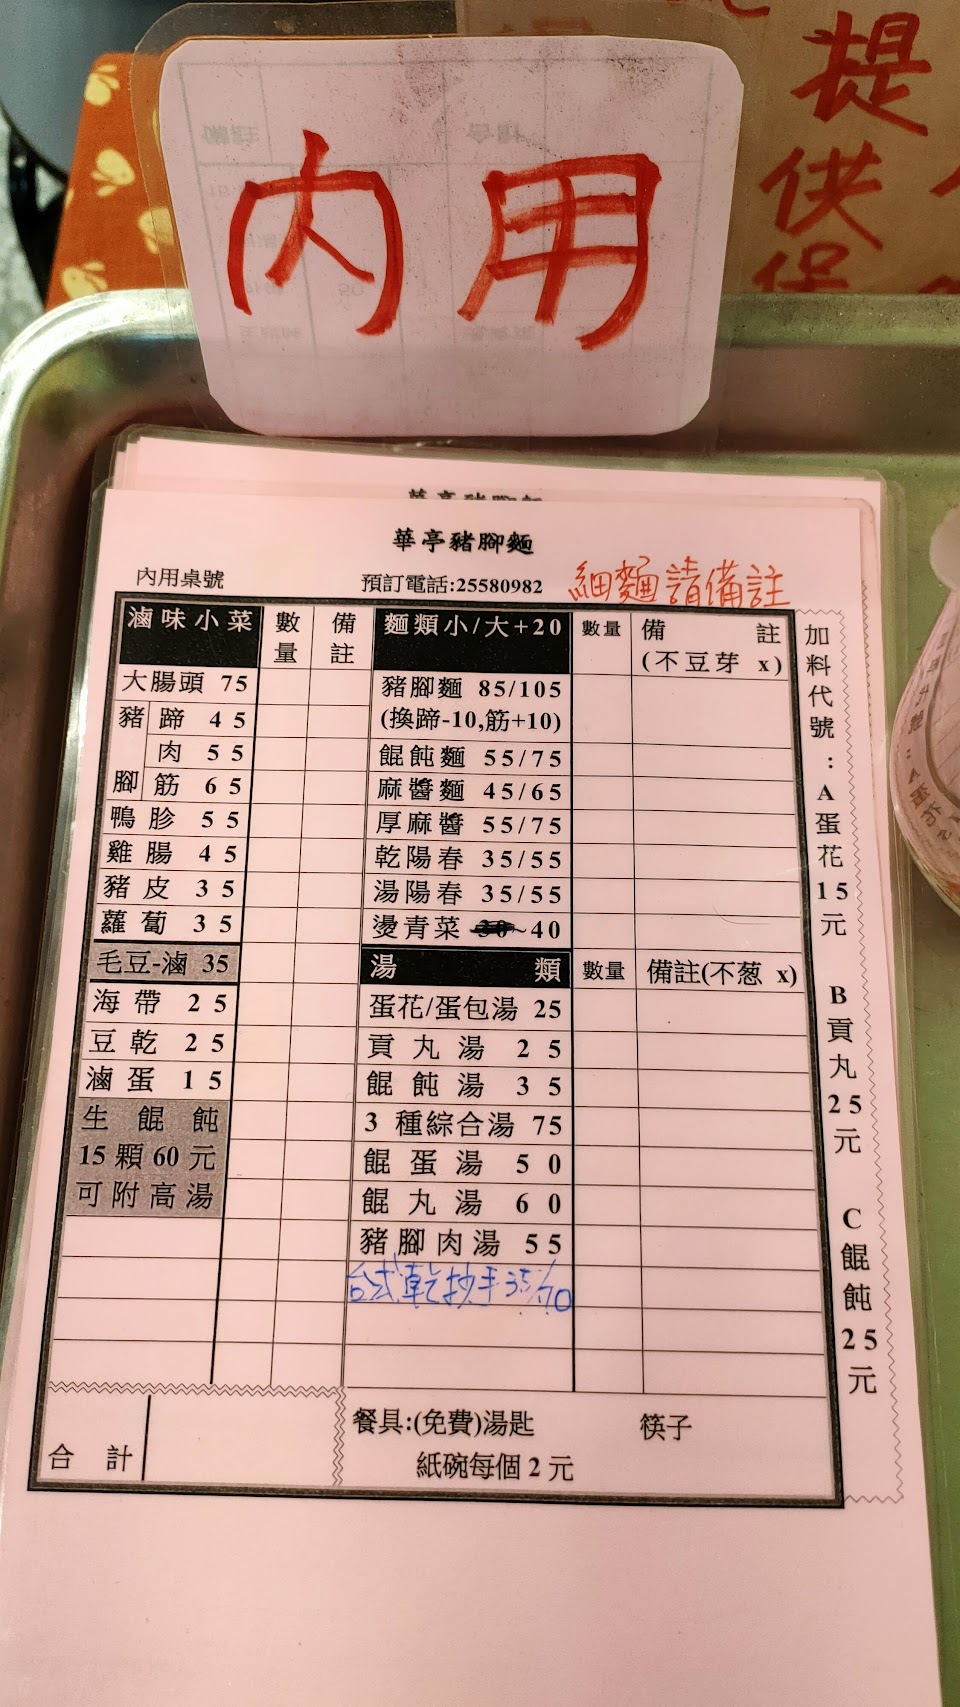 提
供
內用
華亭豬腳麵
內用桌號
預訂電話:25580982
細麵請備註
滷味小菜 數量 備註
大腸頭 75
豬腳 蹄 45
肉 55
筋 65
鴨胗 55
雞腸 45
豬皮 35
蘿蔔 35
毛豆-滷 35
海帶 25
豆乾 25
滷蛋 15
生餛飩
15顆60元
可附高湯
合計
麵類小/大+20 數量 備註
(不豆芽 x)
豬腳麵 85/105
(換蹄-10,筋+10)
餛飩麵 55/75
麻醬麵 45/65
厚麻醬 55/75
乾陽春 35/55
湯陽春 35/55
燙青菜 30~40
湯類 數量 備註(不葱 x)
蛋花/蛋包湯 25
貢丸湯 25
餛飩湯 35
3種綜合湯 75
餛蛋湯 50
餛丸湯 60
豬腳肉湯 55
台式乾抄手35/70
餐具:(免費)湯匙 筷子
紙碗每個2元
加料代號:A蛋花15元 B貢丸25元 C餛飩25元